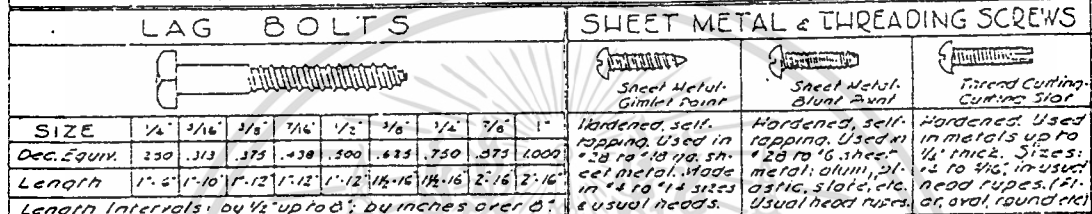 LAG BOLTS
SIZE 1/4" 5/16" 3/8" 7/16" 1/2" 5/8" 3/4" 7/8" 1"
Dec. Equiv. .250 .313 .375 .438 .500 .625 .750 .875 1.000
Length 1"-6" 1"-10" 1"-12" 1"-12" 1"-12" 1½-16 1½-16 2"-16 2"-16"
Length Intervals: by ½" up to 8"; by inches over 8".
SHEET METAL & THREADING SCREWS
Sheet Metal-
Gimlet Point
Hardened, self-
tapping. Used in
#28 to #18 ga. sh-
eet metal. Made
in #4 to #14 sizes
& usual heads.
Sheet Metal-
Blunt Point
Hardened, self-
tapping. Used in
#28 to #6 sheet
metal: alum, pl-
astic, slate, etc.
Usual head types.
Thread Cutting-
Cutting Slot
Hardened. Used
in metals up to
¼" thick. Sizes:
#4 to 5/16; in usual
head types. (Fl-
at, oval, round etc)